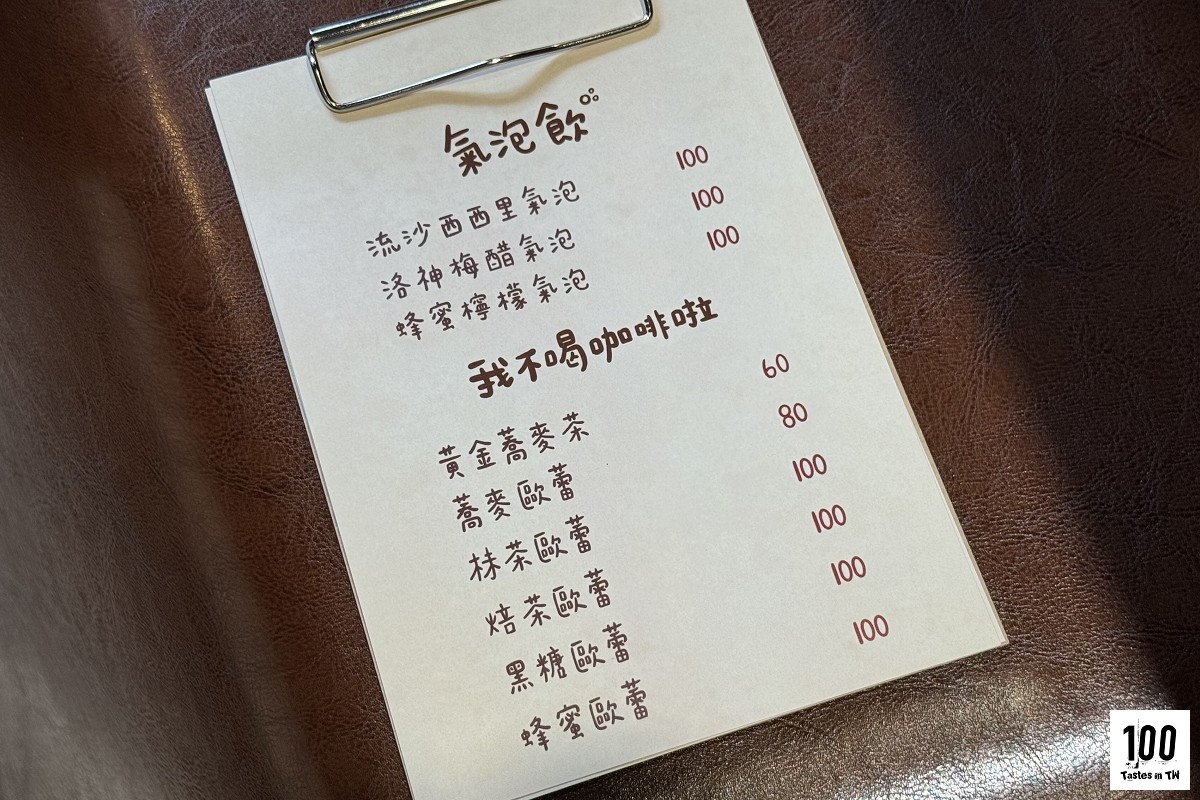 氣泡飲
流沙西西里氣泡 100
洛神梅醋氣泡 100
蜂蜜檸檬氣泡 100
我不喝咖啡啦
黃金蕎麥茶 60
蕎麥歐蕾 80
抹茶歐蕾 100
焙茶歐蕾 100
黑糖歐蕾 100
蜂蜜歐蕾 100
100
Tastes in TW